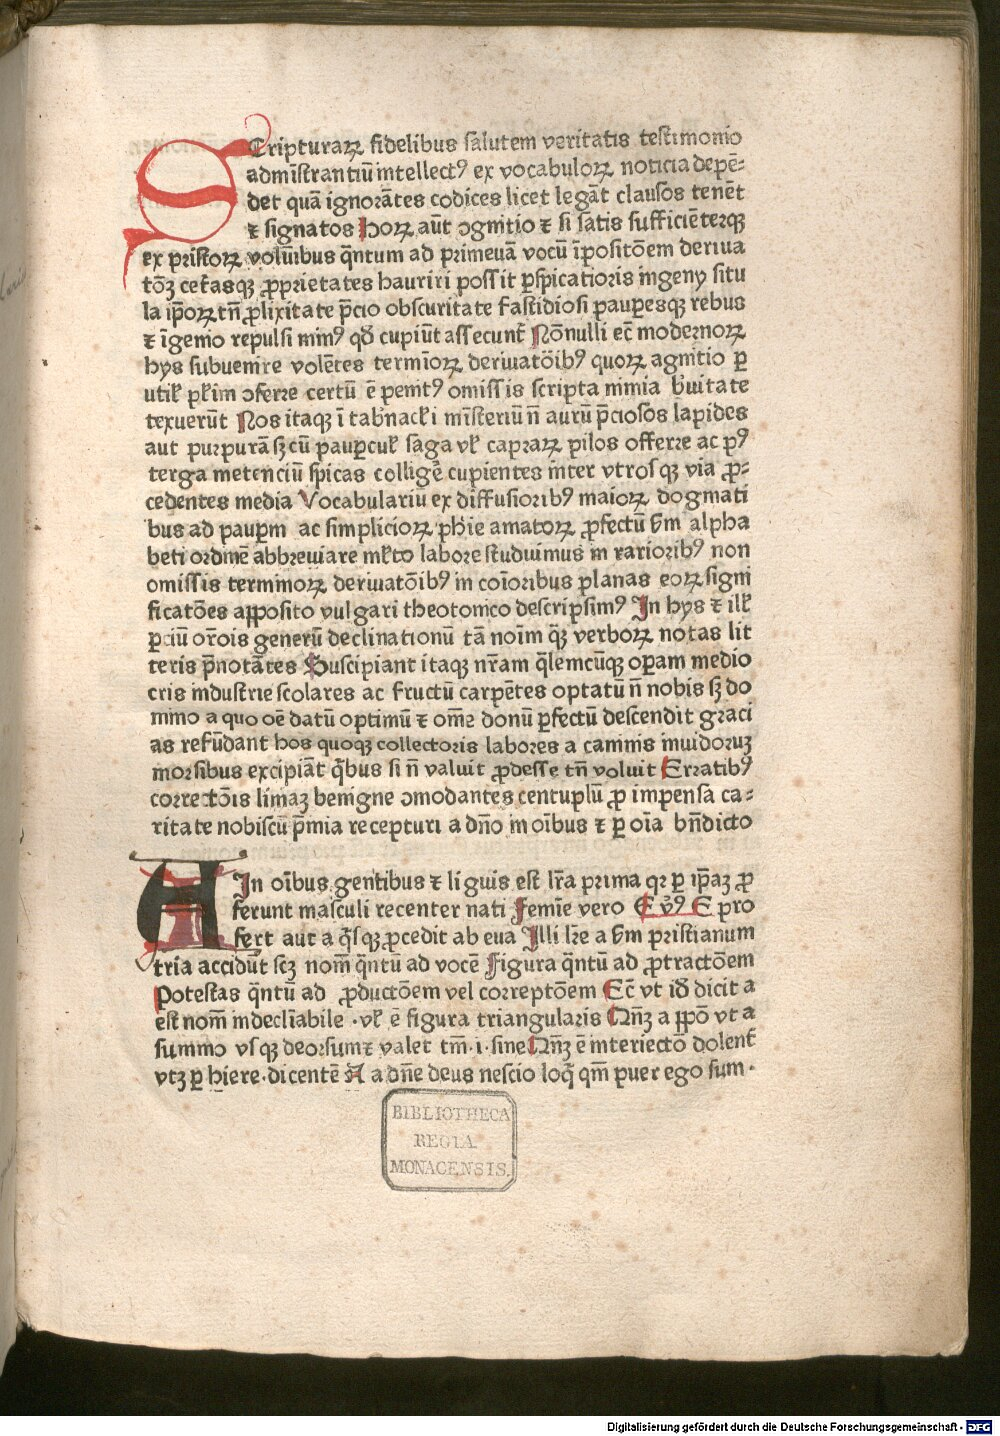 SCripturaꝝ fidelibus salutem veritatis testimonio
admīstrantiū intellectꝰ ex vocabuloꝝ noticia depē⸗
det quā ignorātes codices licet legāt clausos tenēt
⁊ signatos Hoꝝ aūt ꝯgnitio ⁊ si satis sufficiēterqꝫ
ex priscoꝝ volūibus qͫntum ad primeuā vocū īpositōem deriua
tōꝫ cet͛asqꝫ ꝓprietates hauriri possit ꝑspicatioris ingeny situ
la ip̄oꝝ tn̄ ꝓlixitate p̄cio obscuritate fastidiosi pauꝑesqꝫ rebus
⁊ īgenio repulsi minꝰ qð cupiūt assecunt͛ Nōnulli ec̄ modernoꝝ
hys subuenire volētes termīoꝝ deriuatōibꝰ quoꝝ agnitio ꝑ
utiłꝭ płꝭim ꝯferre certū ē penitꝰ omissis scripta nimia b͛uitate
texuerūt Nos itaqꝫ ī tab͛nacłi mīsteriū n̄ aurū p̄ciosos lapides
aut purpurā sꝫ cū pauꝑcuł saga vł capraꝝ pilos offerre ac pꝰ
terga metenciū spicas colligē cupientes inter vtrosqꝫ via ꝓ⸗
cedentes media Vocabulariū ex diffusioribꝰ maioꝝ dogmati
bus ad pauꝑm ac simplicioꝝ phie amatoꝝ ꝓfectū ẜm alpha
beti ordinē abbreuiare młto labore studuimus in rarioribꝰ non
omissis terminoꝝ deriuatōibꝰ in coīoribus planas eoꝝ signi
ficatōes aꝓposito vulgari theotonico descripsimꝰ In hys ⁊ ilł
ꝑciū oro͞is generū declinationū tā noīm qͣꝫ verboꝝ notas lit
teris p̄notātes Suscipiant itaqꝫ nr̄am qͣlemcūqꝫ oꝑam medio
cris industrie scolares ac fructū carpētes optatū n̄ nobis sꝫ do
mino a quo oē datū optimū ⁊ om̄e donū ꝑfectū descendit graci
as refūdant hos quoqꝫ collectoris labores a caninis inuidoruꝫ
morsibus excipiāt qͥbus si n̄ valuit ꝓdesse tn̄ voluit Erratibꝰ
correctōis limaꝫ benigne ꝯmodantes centuplū ꝓ impensa ca⸗
ritate nobiscū p̄mia recepturi a dn̄o in oībus ⁊ ꝑ oīa bn̄dicto
A In oībus gentibus ⁊ liguis est lr̄a prima qꝛ ꝑ ip̄aꝫ ꝓ
ferunt masculi recenter nati Femīe vero E vꝰ E pro
fert aut a qͥsqꝫ ꝓcedit ab eua Illi lr̄e a ẜm pristianum
tria accidūt scꝫ nom̄ qͫntū ad vocē Figura qͫntū ad ꝓtractōem
Potestas qͫntū ad ꝓductōem vel correptōem Ec̄ vt ið dicit a
est nom̄ indeclīabile · vł ē figura triangularis Qn̄ꝫ aꝓpō vt a
summo vsqꝫ deorsum ⁊ valet tm̄ · i · sine Qn̄ꝫ ē interiectō dolent͛
vtꝫ ꝑ hiere · dicentē A a dn̄e deus nescio loqͥ qm̄ puer ego sum ·
BIBLIOTHECA
REGIA
MONACENSIS.
Digitalisierung gefördert durch die Deutsche Forschungsgemeinschaft - DFG